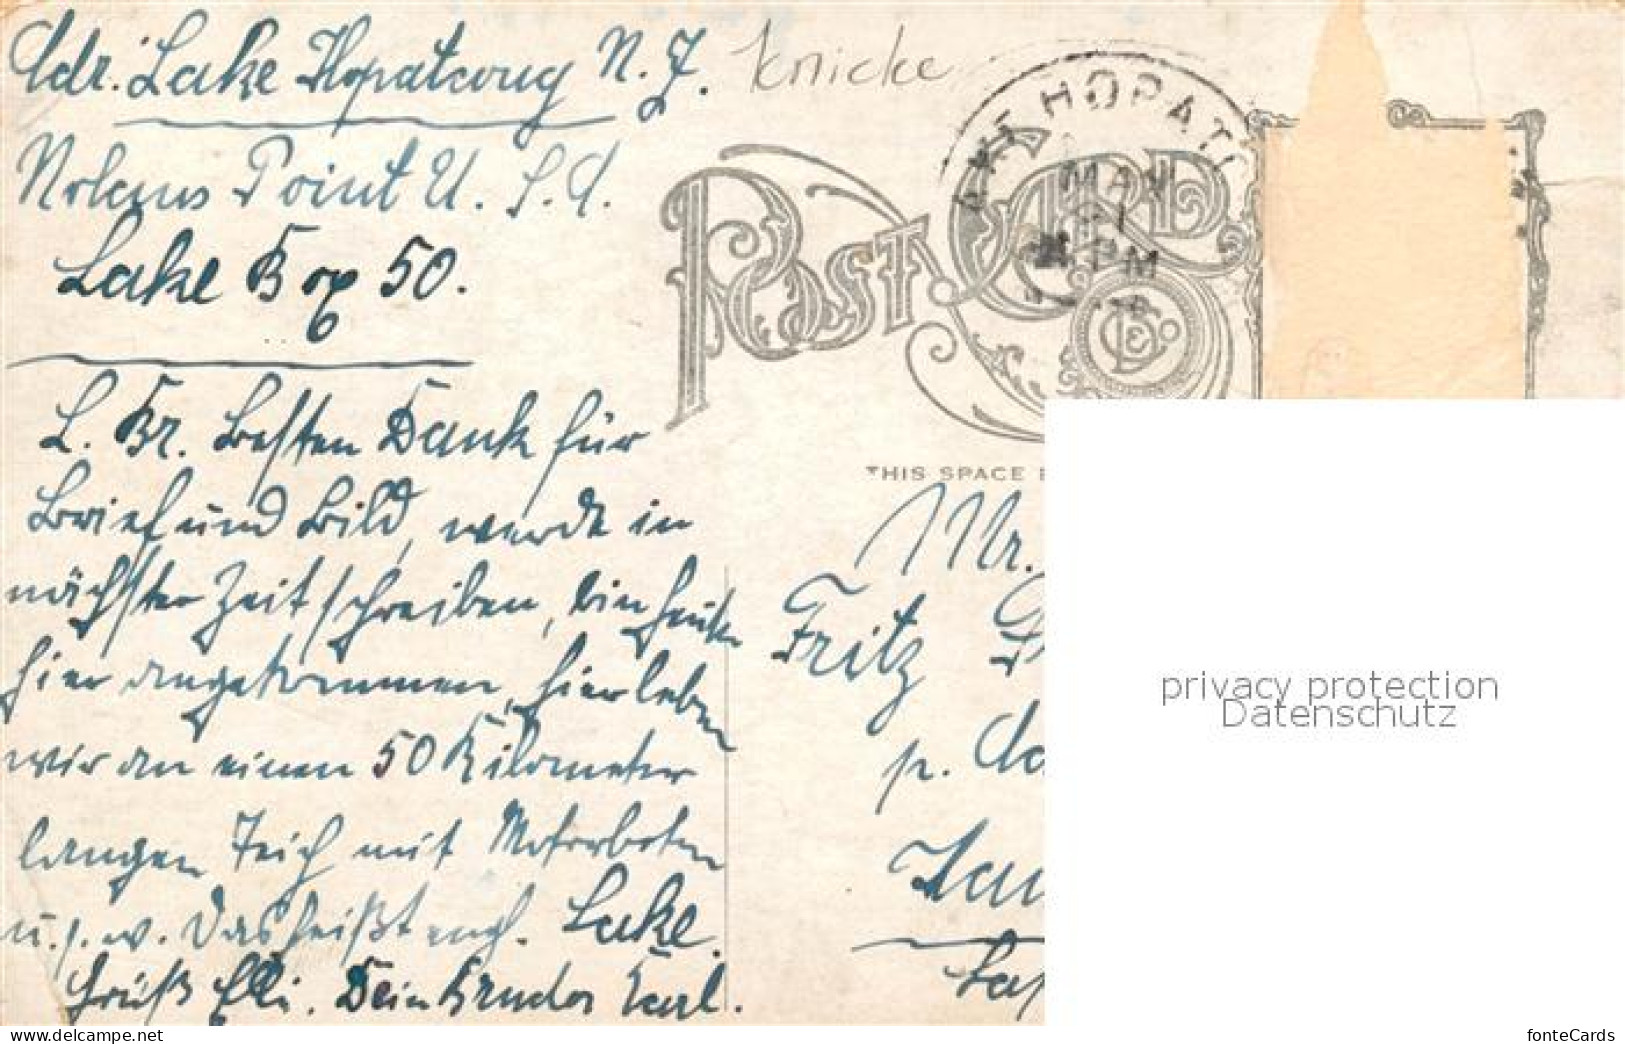 Adr. Lake Hopatcong N. J.
knicke
Nolans Point U. S. A.
Lake Box 50.
POST CARD
HOPATC
MAY
21
PM
THIS SPACE
L. Br. Besten Dank für
Brief und Bild, werde in
nächster Zeit schreiben, bin heute
hier angekommen, hier leben
wir an einen 50 Kilometer
langen Teich mit Motorboten
u. s. w. Das heißt engl. Lake.
Gruß Elli. Dein Bruder Karl.
Mr.
Fritz
p.
privacy protection
Datenschutz
fonteCards
www.delcampe.net